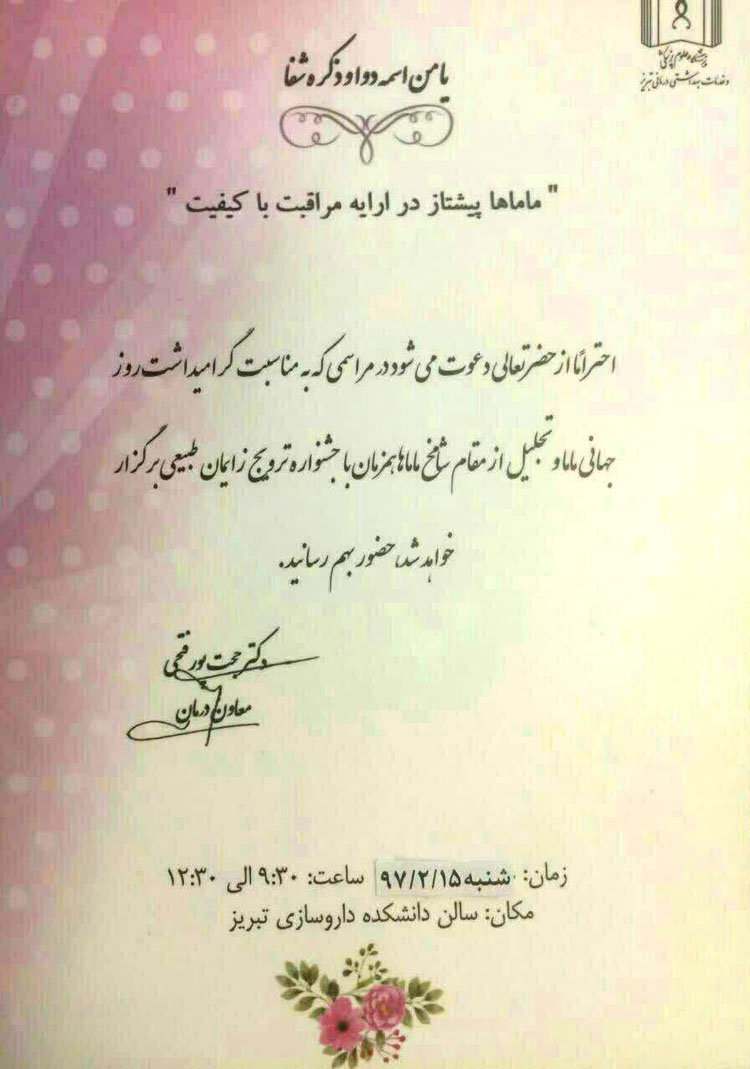 دانشگاه علوم پزشکی
و خدمات بهداشتی درمانی تبریز
یا من اسمه دوا و ذکره شفا
" ماماها پیشتاز در ارایه مراقبت با کیفیت "
احتراماً از حضرتعالی دعوت می شود در مراسمی که به مناسبت گرامیداشت روز
جهانی ماما و تجلیل از مقام شامخ ماماها همزمان با جشنواره ترویج زایمان طبیعی برگزار
خواهد شد، حضور بهم رسانید.
دکتر حجت پورفتحی
معاون درمان
زمان: شنبه ۹۷/۲/۱۵ ساعت: ۹:۳۰ الی ۱۲:۳۰
مکان: سالن دانشکده داروسازی تبریز